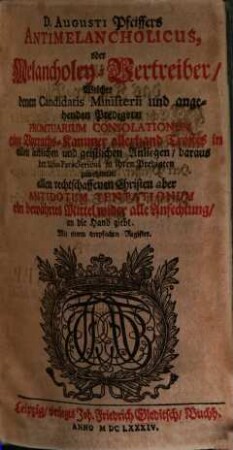 D. AUGUSTI Pfeiffers
ANTIMELANCHOLICUS,
oder
Melancholey-Vertreiber/
Welcher
denen Candidatis Ministerii und ange-
henden Predigern
PROMTUARIUM CONSOLATIONUM
ein Vorraths-Kammer allerhand in
allen leiblichen und geistlichen Anliegen/ daraus
in ihren Predigten
allen rechtschaffenen Christen aber
ANTIDOTUM TENTATIONUM
ein bewährtes Mittel wider alle Anfechtung/
in die Hand giebt.
Mit einem Register.
Leipzig/ verlegts Joh. Friedrich Gleditsch/ Buchh.
ANNO M DC LXXXIV.